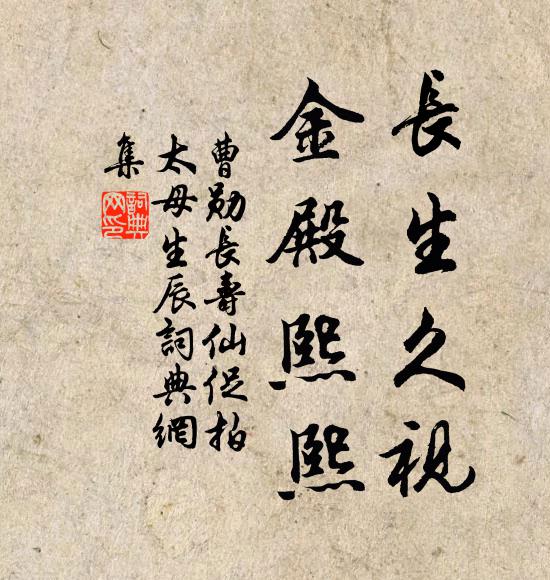 長生久視
金殿熙熙
曹勛長壽仙促拍
太母生辰詞典網
集
詞典網印